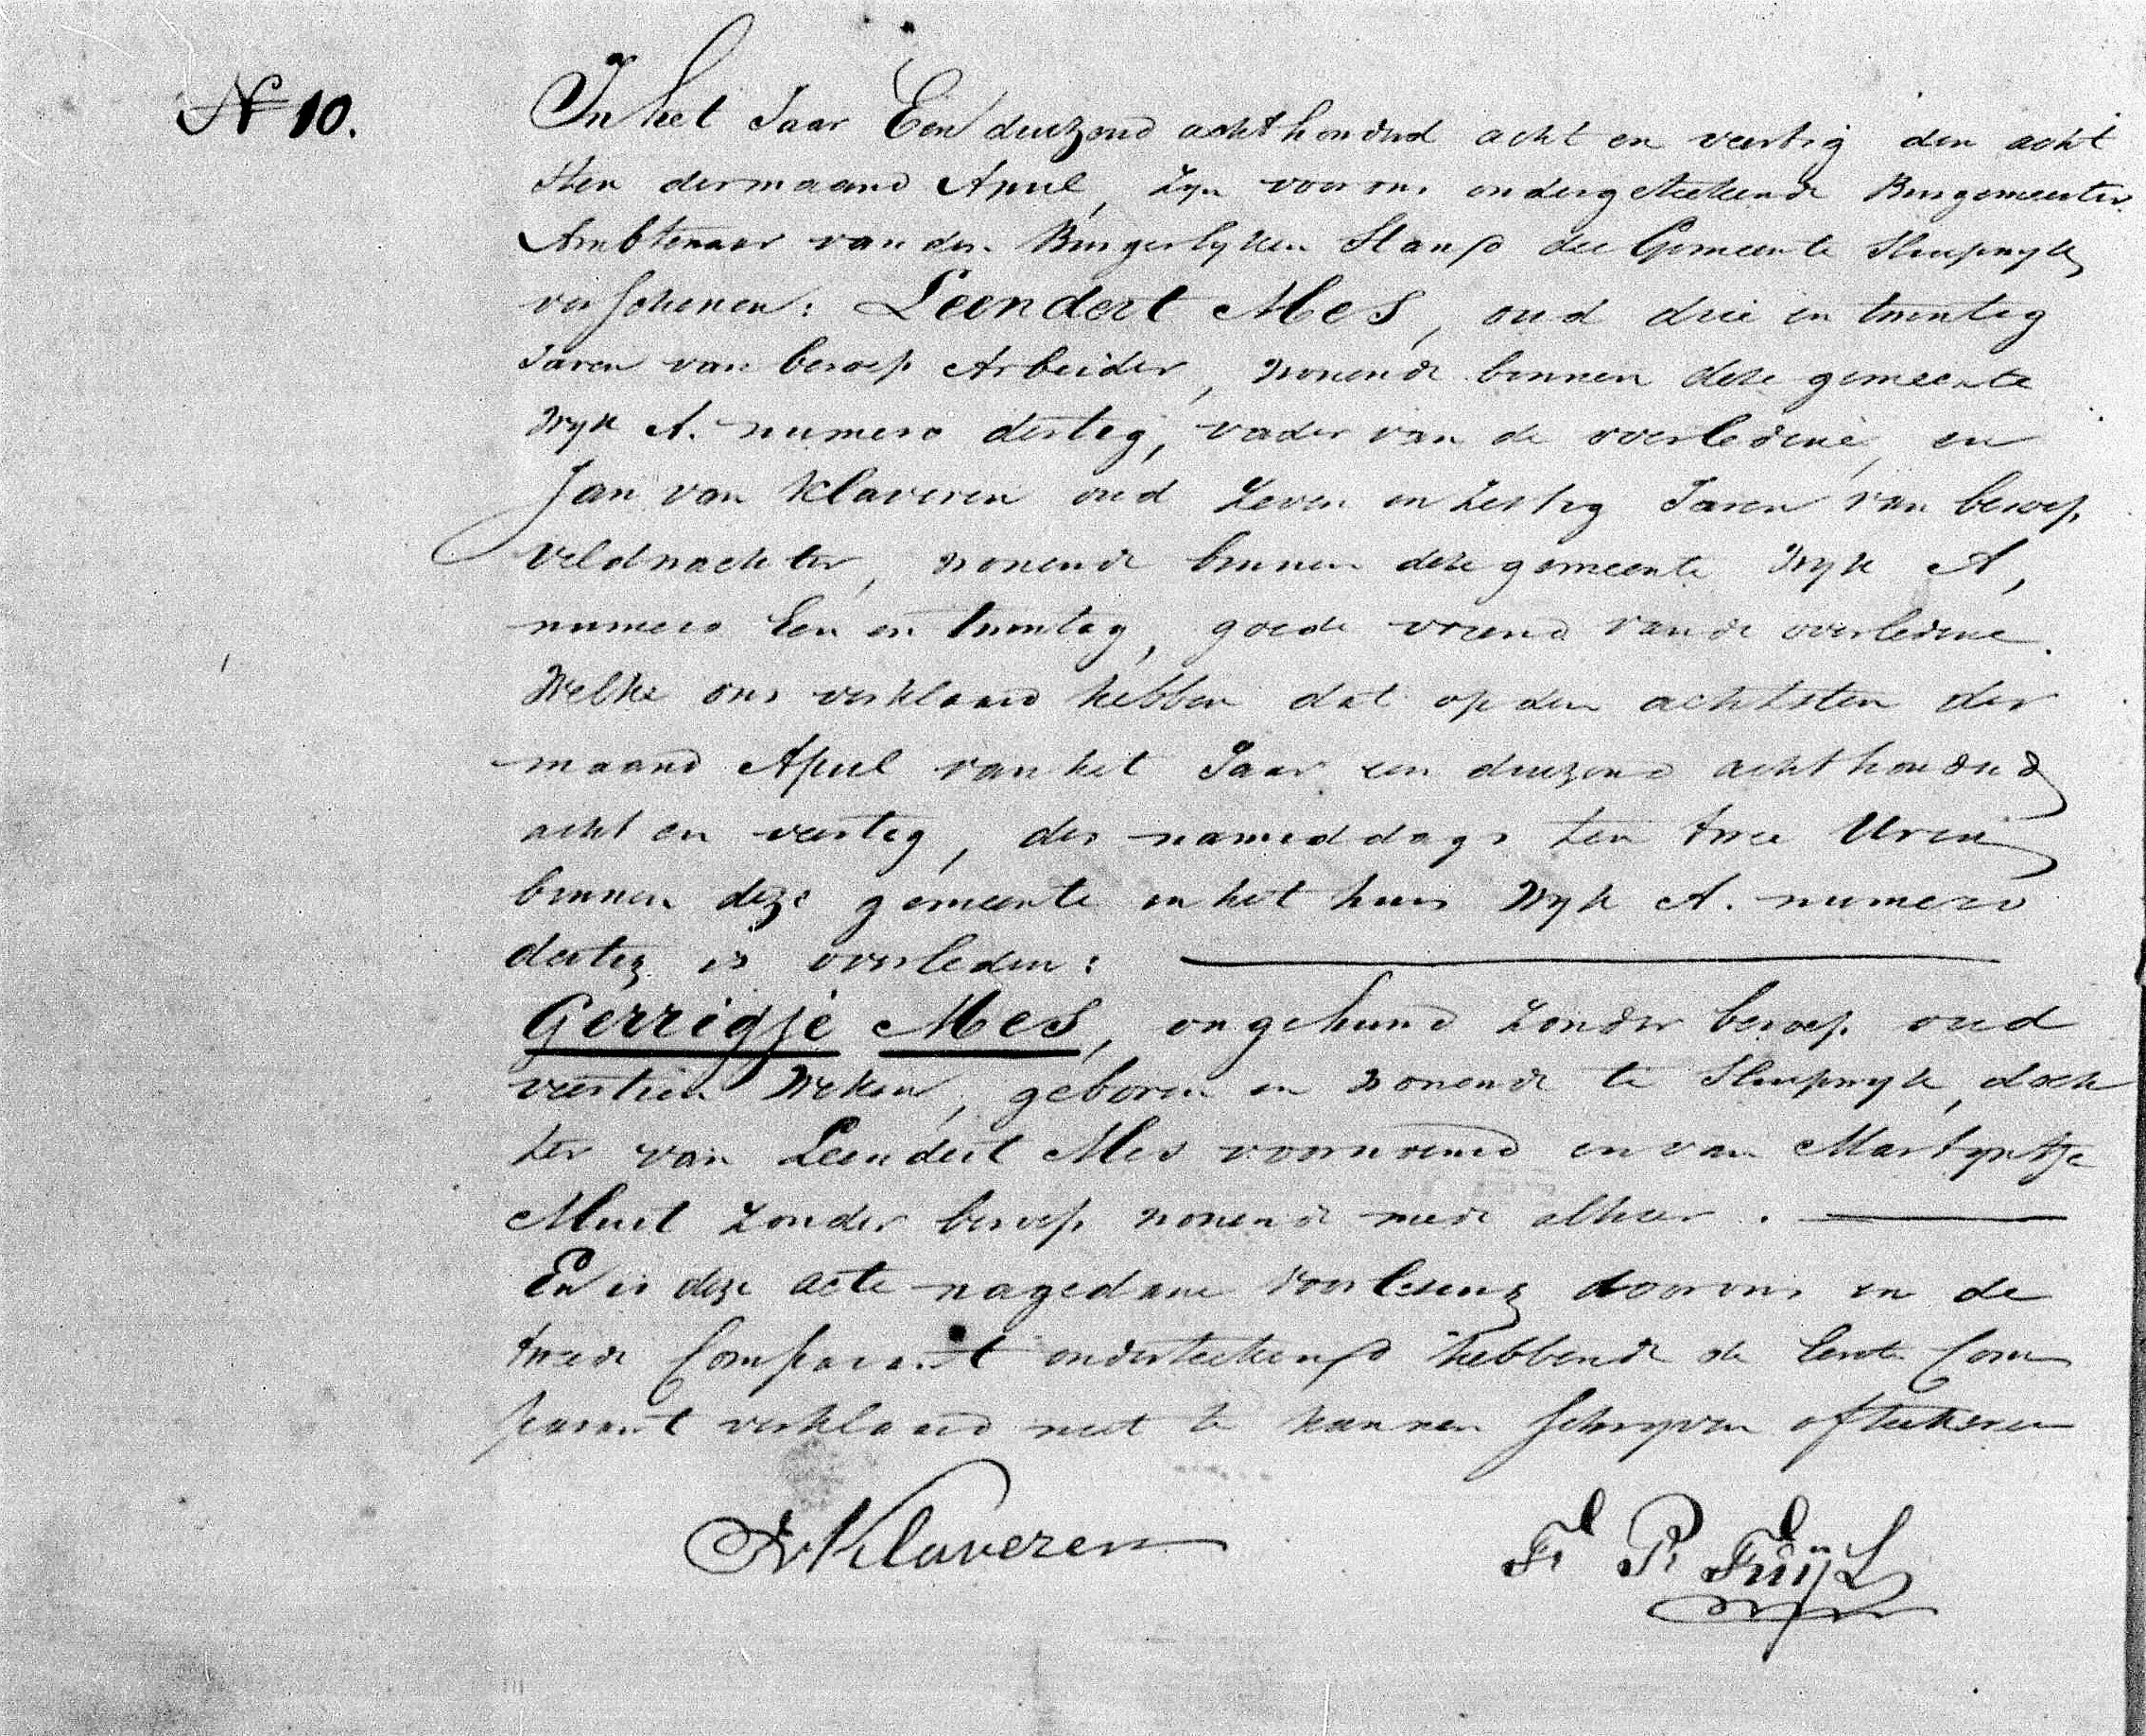 N° 10.
In het Jaar Een duizend achthonderd acht en veertig den acht
sten der maand April, zyn voor ons ondergeteekende Burgemeester
Ambtenaar van den Burgerlyken Stand der Gemeente Sleeuwyk
verschenen: Leendert Mes, oud drie en twintig
Jaren van beroep Arbeider, wonende binnen deze gemeente
Wyk A. numero dertig, vader van de overledene, en
Jan van Klaveren oud Zeven en Zestig Jaren van beroep
veldwachter, wonende binnen deze gemeente Wyk A,
numero Een en twintig, goede vriend van de overledene.
Welke ons verklaard hebben dat op den achtsten der
maand April van het Jaar een duizend achthonderd
acht en veertig, des namiddags ten twee Uren
binnen deze gemeente in het huis Wyk A. numero
dertig is overleden:
Gerrigje Mes, ongehuwd zonder beroep oud
veertien Weken, geboren en wonende te Sleeuwyk, doch
ter van Leendert Mes voornoemd en van Martyntje
zonder beroep wonende mede alhier.
En is deze acte na gedane voorlezing door ons en de
tweede Comparant onderteekend hebbende de Eerste Com
parant verklaard niet te kunnen schryven of teekenen
JvKlaveren